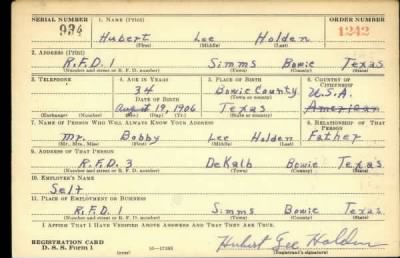 SERIAL NUMBER 1. NAME (Print) ORDER NUMBER
934 Hubert Lee Holden 1242
(First) (Middle) (Last)
2. ADDRESS (Print)
R.F.D. 1 Simms Bowie Texas
(Number and street or R. F. D. number) (Town) (County) (State)
3. TELEPHONE 4. AGE IN YEARS 5. PLACE OF BIRTH 6. COUNTRY OF CITIZENSHIP
34 Bowie County U.S.A.
DATE OF BIRTH (Town or county)
August 19, 1906 Texas American
(Exchange) (Number) (Mo.) (Day) (Yr.) (State or country)
7. NAME OF PERSON WHO WILL ALWAYS KNOW YOUR ADDRESS 8. RELATIONSHIP OF THAT PERSON
Mr. Bobby Lee Holden Father
(Mr., Mrs., Miss) (First) (Middle) (Last)
9. ADDRESS OF THAT PERSON
R.F.D. 3 DeKalb Bowie Texas
(Number and street or R. F. D. number) (Town) (County) (State)
10. EMPLOYER'S NAME
Self
11. PLACE OF EMPLOYMENT OR BUSINESS
R.F.D. 1 Simms Bowie Texas
(Number and street or R. F. D. number) (Town) (County) (State)
I AFFIRM THAT I HAVE VERIFIED ABOVE ANSWERS AND THAT THEY ARE TRUE.
REGISTRATION CARD
D. S. S. Form 1 (over) 16-17105 Hubert Lee Holden
(Registrant's signature)